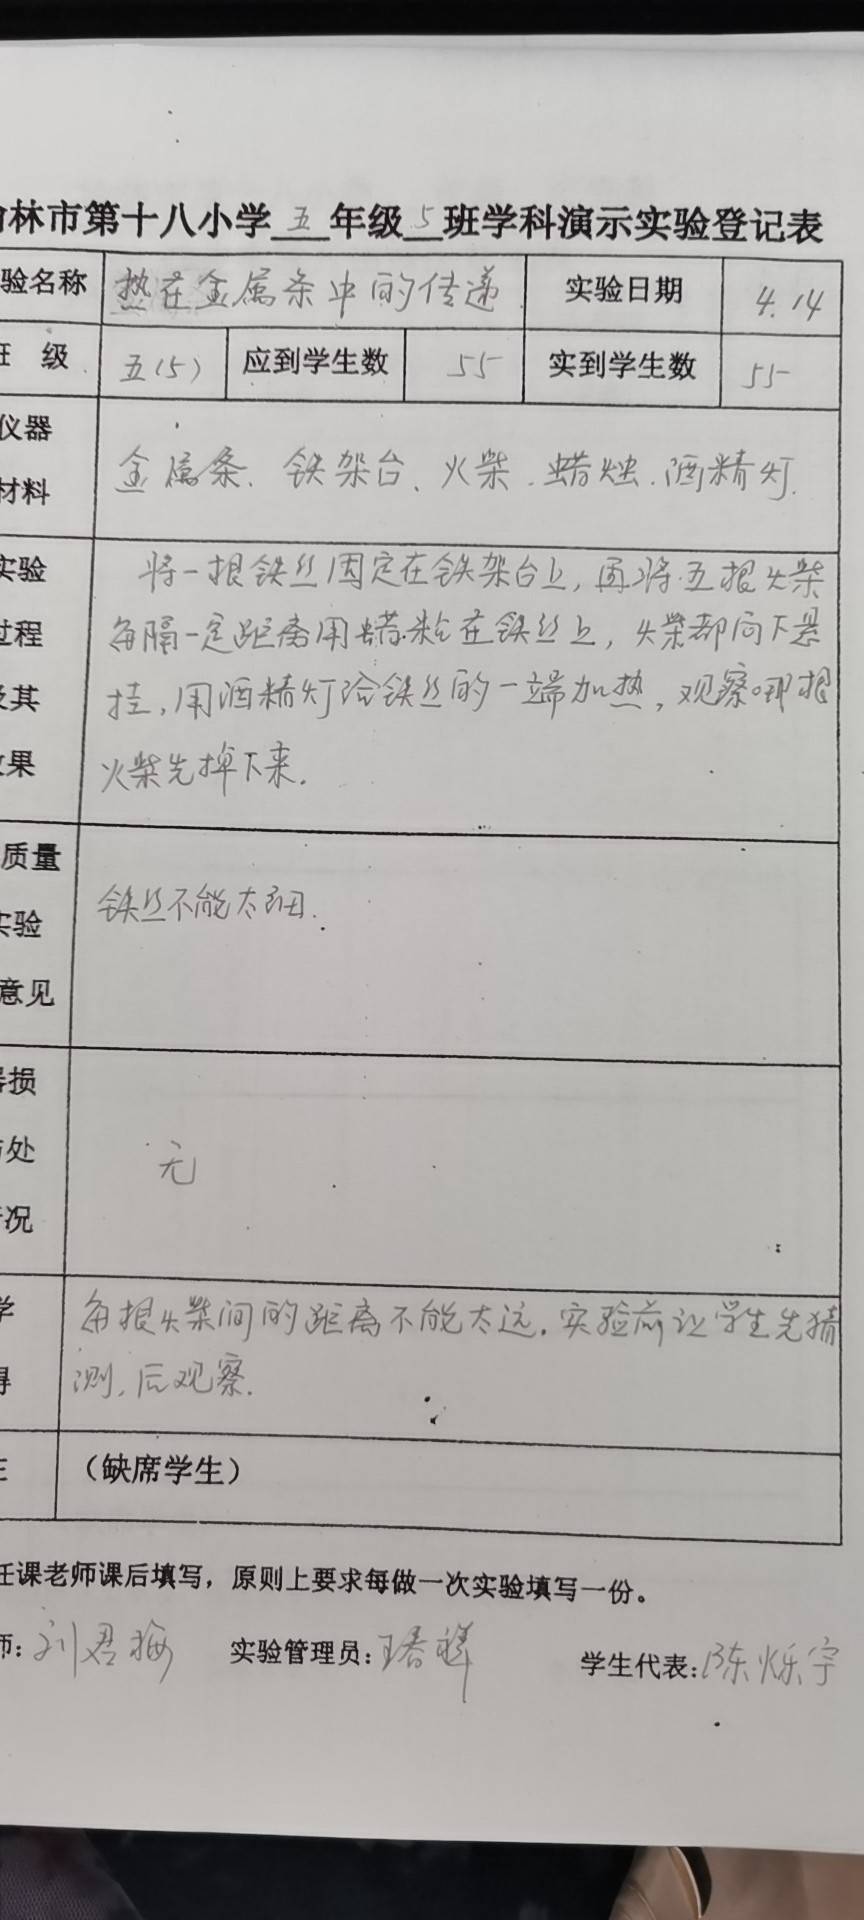 林市第十八小学 五 年级 5 班学科演示实验登记表
验名称 热在金属条中的传递 实验日期 4.14
级 五(5) 应到学生数 55 实到学生数 55
仪器
材料
金属条、铁架台、火柴、蜡烛、酒精灯.
实验
过程
及其
效果
将一根铁丝固定在铁架台上,再将五根火柴
每隔一定距离用蜡粘在铁丝上,火柴都向下悬
挂,用酒精灯给铁丝的一端加热,观察哪根
火柴先掉下来.
质量
实验
意见
铁丝不能太细.
损
处
况
无
学
得
每根火柴间的距离不能太远.实验前让学生先猜
测,后观察.
(缺席学生)
任课老师课后填写,原则上要求每做一次实验填写一份。
师:刘君梅 实验管理员: 学生代表:陈烁宇